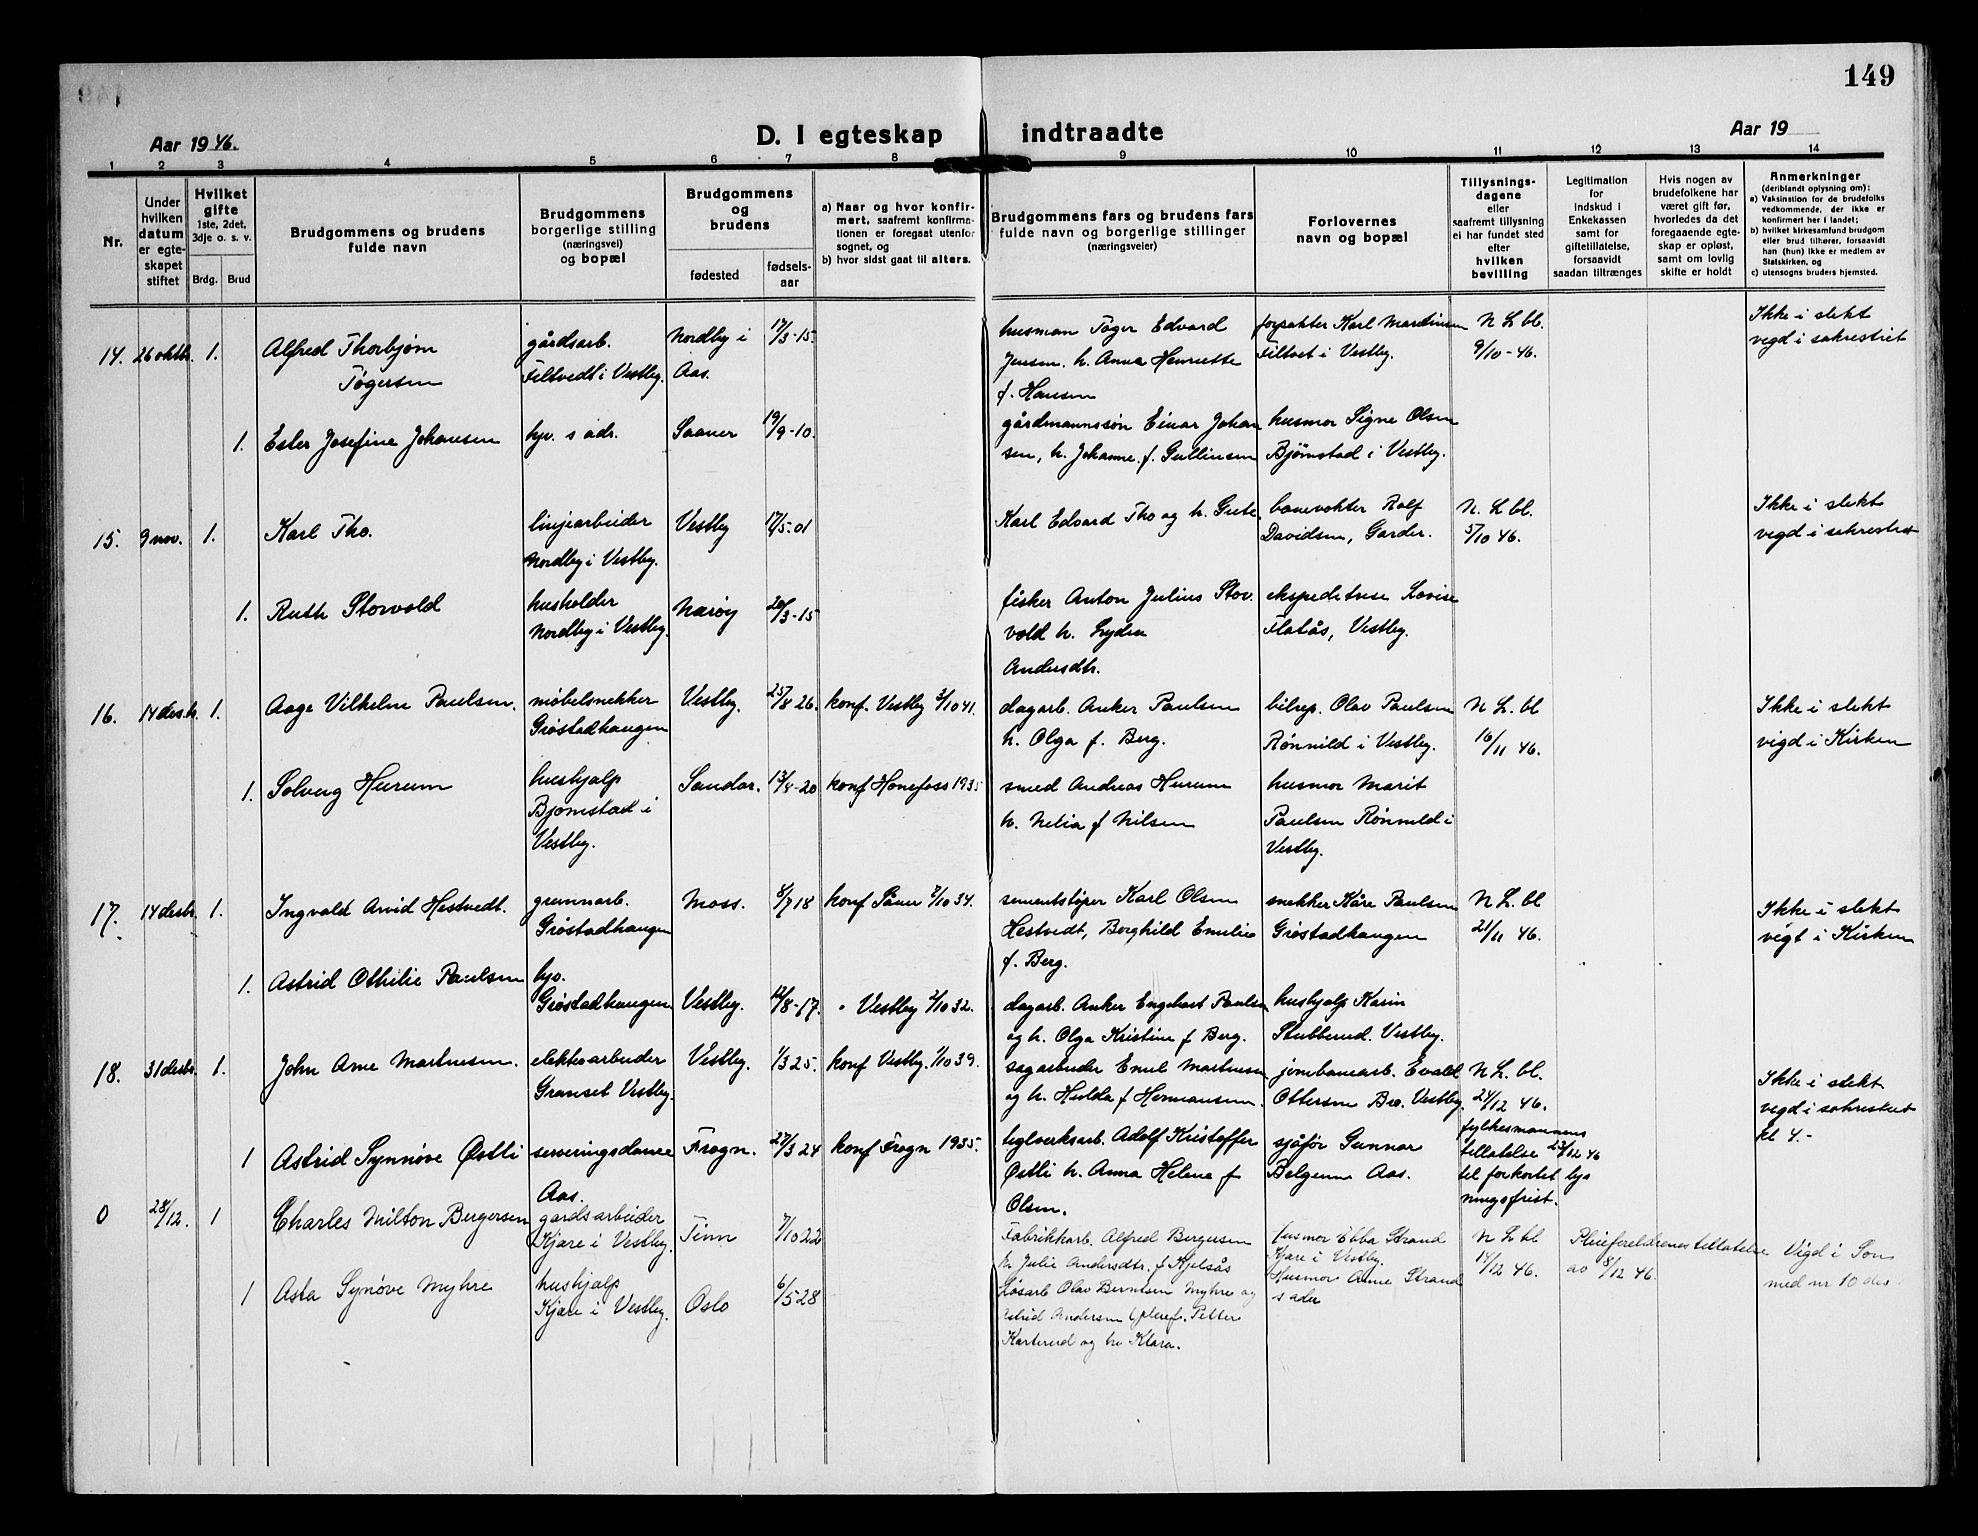 149
Aar 1946.
D. I egteskap indtraadte
Aar 19
1 2 3 4 5 6 7 8 9 10 11 12 13 14
Nr.
Under hvilken datum er egteskapet stiftet
Hvilket gifte 1ste, 2det, 3dje o. s. v.
Brdg. Brud
Brudgommens og brudens fulde navn
Brudgommens borgerlige stilling (næringsvei) og bopæl
Brudgommens og brudens
fødested
fødselsaar
a) Naar og hvor konfirmert, saafremt konfirmationen er foregaat utenfor sognet, og
b) hvor sidst gaat til alters.
Brudgommens fars og brudens fars fulde navn og borgerlige stillinger (næringsveier)
Forlovernes navn og bopæl
Tillysningsdagene eller saafremt tillysning ei har fundet sted efter hvilken bevilling
Legitimation for indskud i Enkekassen samt for giftetillatelse, forsaavidt saadan tiltrænges
Hvis nogen av brudefolkene har været gift før, hvorledes da det foregaaende egteskap er opløst, samt om lovlig skifte er holdt
Anmerkninger (deriblandt oplysning om):
a) Vaksination for de brudefolks vedkommende, der ikke er konfirmert her i landet;
b) hvilket kirkesamfund brudgom eller brud tilhører, forsaavidt han (hun) ikke er medlem av Statskirken, og
c) utensogns bruders hjemsted.
14. 26 oktb. 1.
Alfred Thorbjørn
Tøgersen
gårdsarb.
Filtvedt i Vestby.
Nordby i
Aas.
17/3-15.
husman Tøger Edvard
Jensen. h. Anna Henriette
f. Hansen
forpakter Karl Martinsen
Filtvet i Vestby.
N L bl.
9/10-46.
Ikke i slekt
vegd i sakrestiet
1. Ester Josefine Johansen
hjv. s adr.
Saaner
19/9-10.
gårdmannssøn Einar Johan
sen, h. Johanne f. Gullinsen
husmor Signe Olsen
Bjørnstad i Vestby.
15. 9 nov. 1.
Karl Tho.
linjearbeider
Nordby i Vestby.
Vestby
17/5-01
Karl Edvard Tho og h. Gute
banevokter Rolf
Davidsen, Garder.
N. L bl.
5/10 46.
Ikke i slekt
vegd i sakrestiet
1. Ruth Storvold
husholder
Nordby i Vestby.
Nærøy
20/3-15
fisker Anton Julius Stor
vold h. Lyden
Andersdtr.
ekspeditrise Lovise
Flatås, Vestby.
16. 14 desb. 1.
Aage Vilhelm Paulsen.
møbelsnekker
Grøstadhaugen
Vestby.
25/8 26.
konf. Vestby 3/10 41.
dagarb. Anker Paulsen
h. Olga f. Berg.
bilrep. Olav Paulsen
Rønnild i Vestby.
N L. bl
16/11 46.
Ikke i slekt
vigd i Kirken
1. Solveig Hurum
hushjalp
Bjørnstad i
Vestby.
Sandar.
13/8-20
konf Hønefoss 1935
smed Andreas Hurum
h. Nelia f Nilsen
husmor Marit
Paulsen Rønnild i
Vestby.
17. 14 desb. 1.
Ingvald Arvid Hestvedt.
grunnarb.
Grøstadhaugen
Moss.
8/7 18
konf Såner 7/10 34.
sementstøper Karl Olsen
Hestvedt, Borghild Emilie
f. Berg.
snekker Kåre Paulsen
Grøstadhaugen
N L. bl
21/11 46.
Ikke i slekt
vigt i Kirken
1. Astrid Othilie Paulsen
hjv.
Grøstadhaugen
Vestby.
/8-17.
" Vestby 2/10 32.
dagarb. Anker Engebart Paulsen
og h. Olga Kristine f Berg.
hushjalp Karin
Stubberud. Vestby.
18. 31 desbr. 1.
John Arne Martinsen.
elektroarbeider
Granset Vestby.
Vestby.
1/3 25.
konf Vestby. 1/10 39.
sagarbeider Emil Martinsen
og h. Hulda f Hermansen.
jernbanearb. Evald
Ottersen Bro. Vestby.
N L. bl.
21/12 46.
fylkesmannens
tillatelse 23/12 46
til forkortet lys
ningsfrist.
Ikke i slekt
vegd i sakrestiet
kl 4.-
1 Astrid Synnøve Østli
serveringsdame
Aas.
Frogn.
27/3 24
konf Frogn 1935.
teglverksarb. Adolf Kristoffer
Østli h. Anna Helene f
Olsen.
sjåfør Gunnar
Belgum Aas.
0 28/12. 1
Charles Milton Bergersen
gardsarbeider
Kjare i Vestby.
Tinn
7/10 22
Fabrikkarb. Alfred Bergersen
h. Julie Andersdtr. f Kjelsås
Husmor Ebba Strand
Kjare i Vestby.
N L bl
14/12 46.
Pleieforeldrenes tillatelse
av 8/12 46.
Vigd i Son
med nr 10 der
1 Asta Synøve Myhre
hushjalp
Kjare i Vestby.
Oslo
6/5 28
Løsarb Olav Berntsen Myhre og
Astrid Andersen (pleief. Petter
Karterud og hu Klara.
Husmor Anne Strand
s adr